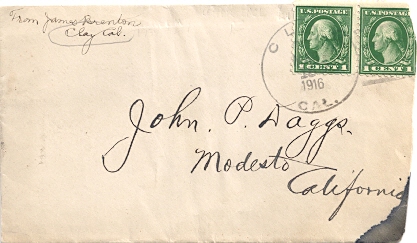 From James Drenton
Clay Cal.
U.S. POSTAGE
1 CENT 1
U.S. POSTAGE
1 CENT 1
1916
CAL.
John. P. Daggs.
Modesto
California